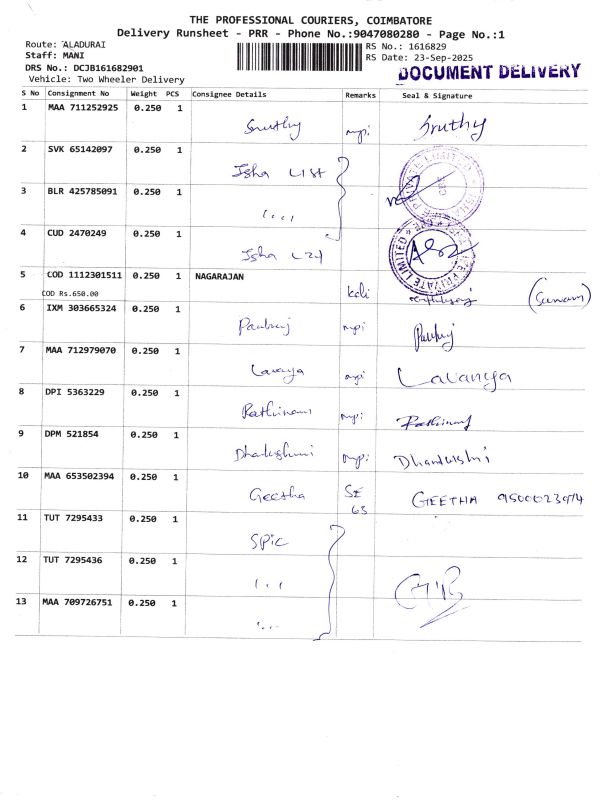 THE PROFESSIONAL COURIERS, COIMBATORE
Delivery Runsheet - PRR - Phone No.:9047080280 - Page No.:1
Route: ALADURAI
RS No.: 1616829
Staff: MANI
RS Date: 23-Sep-2025
DRS No.: DCJB161682901
DOCUMENT DELIVERY
Vehicle: Two Wheeler Delivery
S No Consignment No Weight PCS Consignee Details Remarks Seal & Signature
1 MAA 711252925 0.250 1
Sruthy mpi Sruthy
2 SVK 65142097 0.250 1
Isha
3 BLR 425785091 0.250 1
4 CUD 2470249 0.250 1
Isha
PRIVATE LIMITED
5 COD 1112301511 0.250 1 NAGARAJAN
COD Rs.650.00
6 IXM 303665324 0.250 1
mpi
7 MAA 712979070 0.250 1
Lavanya mpi Lavanya
8 DPI 5363229 0.250 1
Rathinam mpi
9 DPM 521854 0.250 1
mpi
10 MAA 653502394 0.250 1
Geetha SE GEETHA
65
11 TUT 7295433 0.250 1
SPIC
12 TUT 7295436 0.250 1
13 MAA 709726751 0.250 1